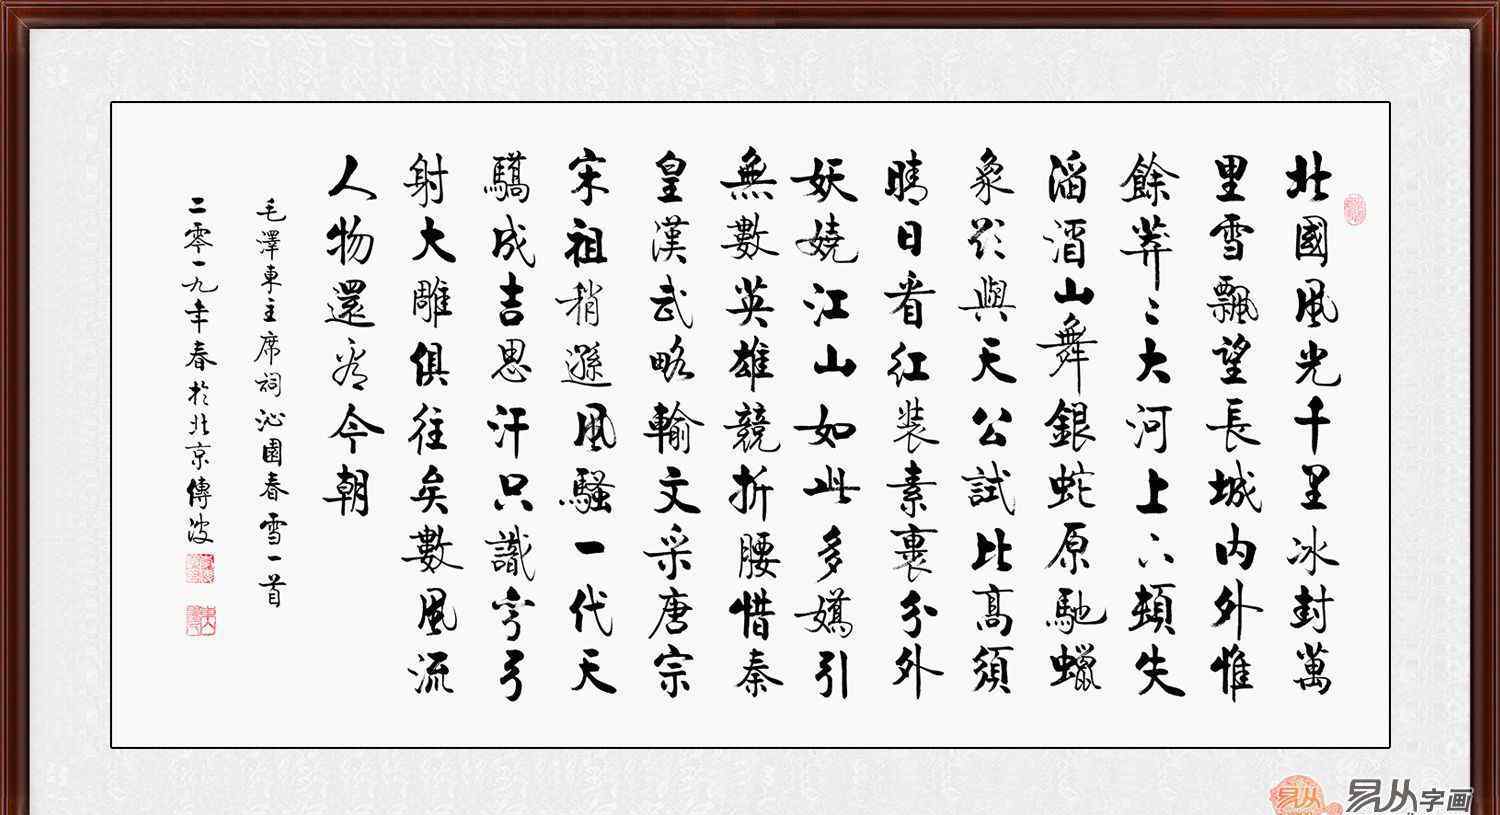 北國風光千里冰封萬
里雪飄望長城內外惟
餘莽〻大河上下頓失
滔滔山舞銀蛇原馳蠟
象欲與天公試比高須
晴日看紅裝素裹分外
妖嬈江山如此多嬌引
無數英雄競折腰惜秦
皇漢武略輸文采唐宗
宋祖稍遜風騷一代天
驕成吉思汗只識彎弓
射大雕俱往矣數風流
人物還看今朝
毛澤東主席詞沁園春雪一首
二零一九年春於北京傳波
易从
易从字画